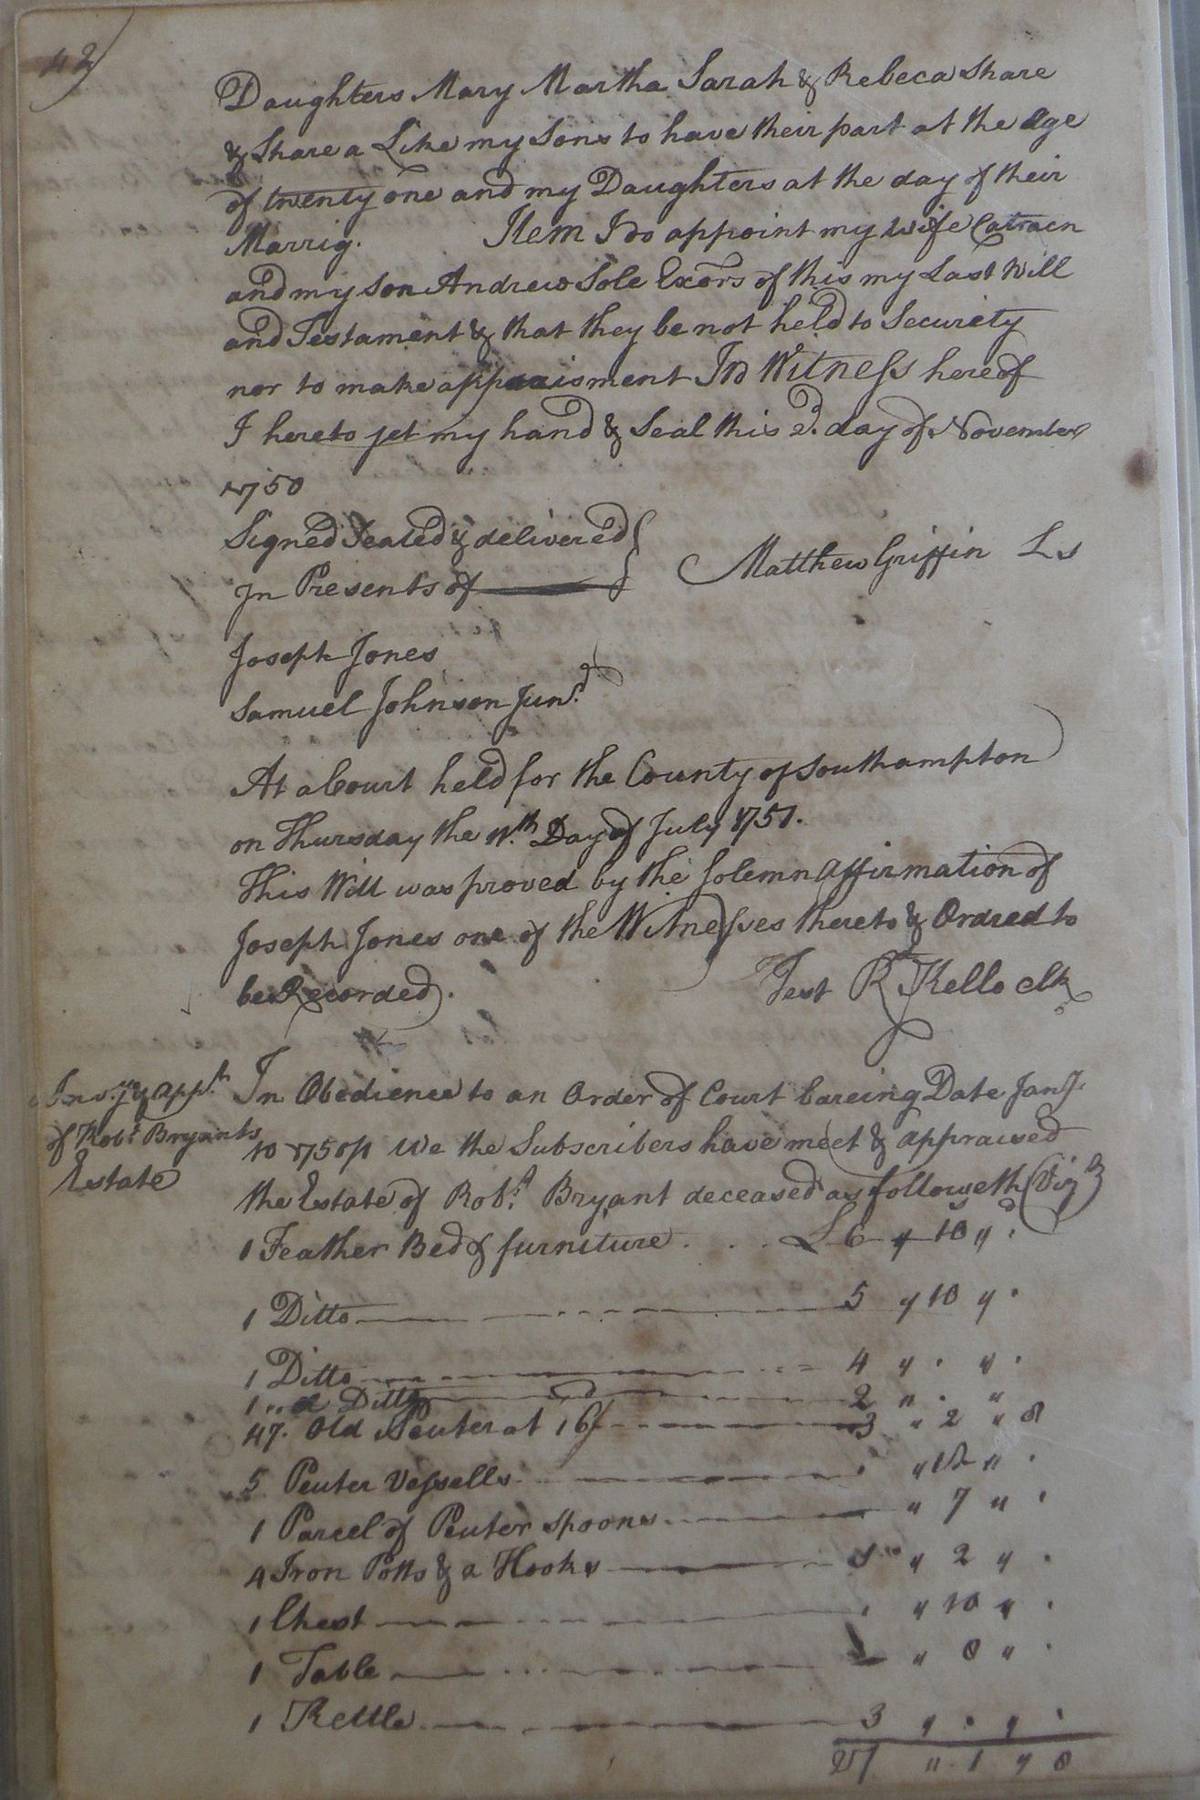 42
Daughters Mary Martha Sarah & Rebeca Share
& Share a Like my Sons to have their part at the age
of twenty one and my Daughters at the day of their
Marrig. Item I do appoint my wife Catraen
and my Son Andrew Sole Exors of this my Last Will
and Testament & that they be not held to Securiety
nor to make appraisment In Witness hereof
I hereto set my hand & Seal this 2d. day of November
1750
Signed Sealed & delivered
In Presents of
Matthew Griffin Ls
Joseph Jones
Samuel Johnson Junr.
At a Court held for the County of Southampton
on Thursday the 11th Day of July 1751.
This Will was proved by the Solemn Affirmation of
Joseph Jones one of the Witnesses thereto & Ordred to
be Recorded.
Test R Kello clk
Invy. & appt.
of Robt. Bryants
Estate
In Obedience to an Order of Court bareing Date Jany.
10 1750/1 We the Subscribers have meet & appraised
the Estate of Robt. Bryant deceased as followeth (Vizt)
1 Feather Bed & furniture . . . £ 6 " 10 " .
1 Ditto 5 " 10 " .
1 Ditto 4 " . " .
1 " d Ditto 2 " . "
47. Old Peuter at 16/ 3 " 2 " 8
5 Peuter Vessells . " 12 " .
1 Parcel of Peuter spoons " 7 " .
4 Iron Potts & a Hooks 1 " 2 " .
1 Chest . " 10 " .
1 Table " 8 " .
1 Kettle 3 " . " .
27 " 1 " 8